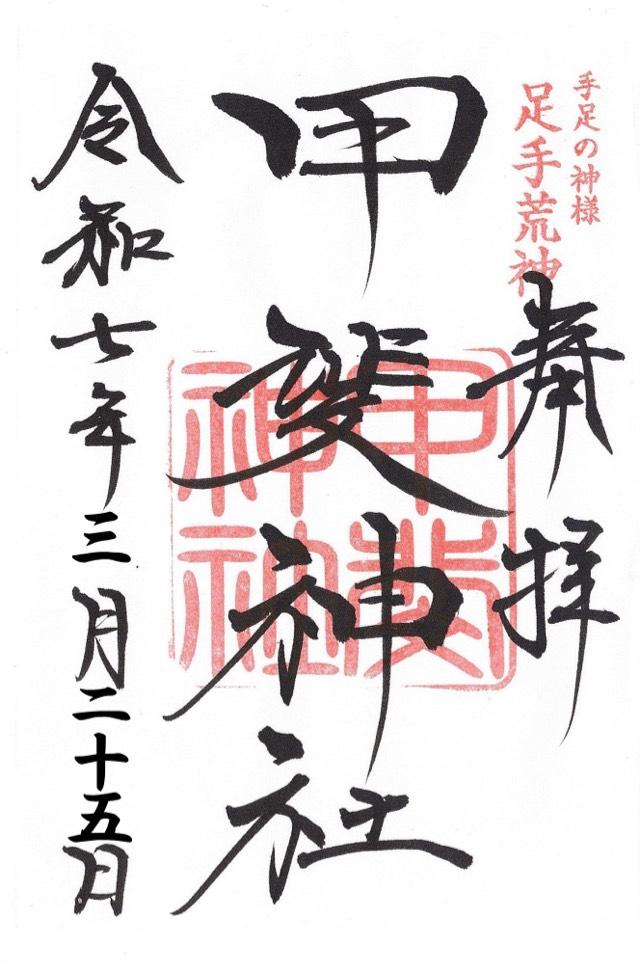 手足の神様
足手荒神
奉拝
甲斐神社
甲斐神社
令和七年三月二十五月